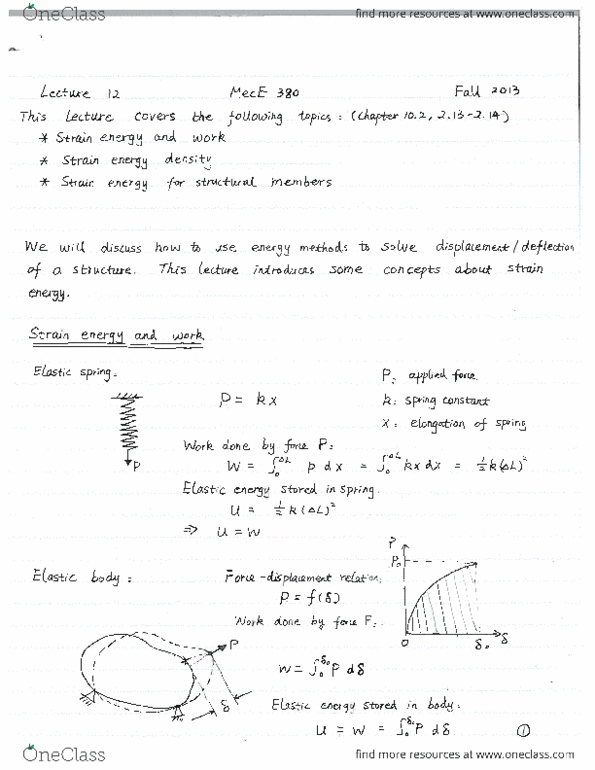 OneClass
find more resources at www.oneclass.com
Lecture 12 MecE 380 Fall 2013
This lecture covers the following topics: (Chapter 10.2, 2.13-2.14)
* Strain energy and work
* Strain energy density
* Strain energy for structural members
We will discuss how to use energy methods to solve displacement/deflection
of a structure. This lecture introduces some concepts about strain
energy.
Strain energy and work
Elastic spring:
P: applied force
P = kx
k: spring constant
x: elongation of spring
P
Work done by force P:
W = ∫₀^ΔL p dx = ∫₀^ΔL kx dx = ½k(ΔL)²
Elastic energy stored in spring.
U = ½k(ΔL)²
⇒ U = W
Elastic body:
Force-displacement relation:
P = f(δ)
Work done by force P:
P
P₀
0 δ₀ δ
P
δ
W = ∫₀^δ₀ P dδ
Elastic energy stored in body:
U = W = ∫₀^δ₀ P dδ ①
OneClass
find more resources at www.oneclass.com